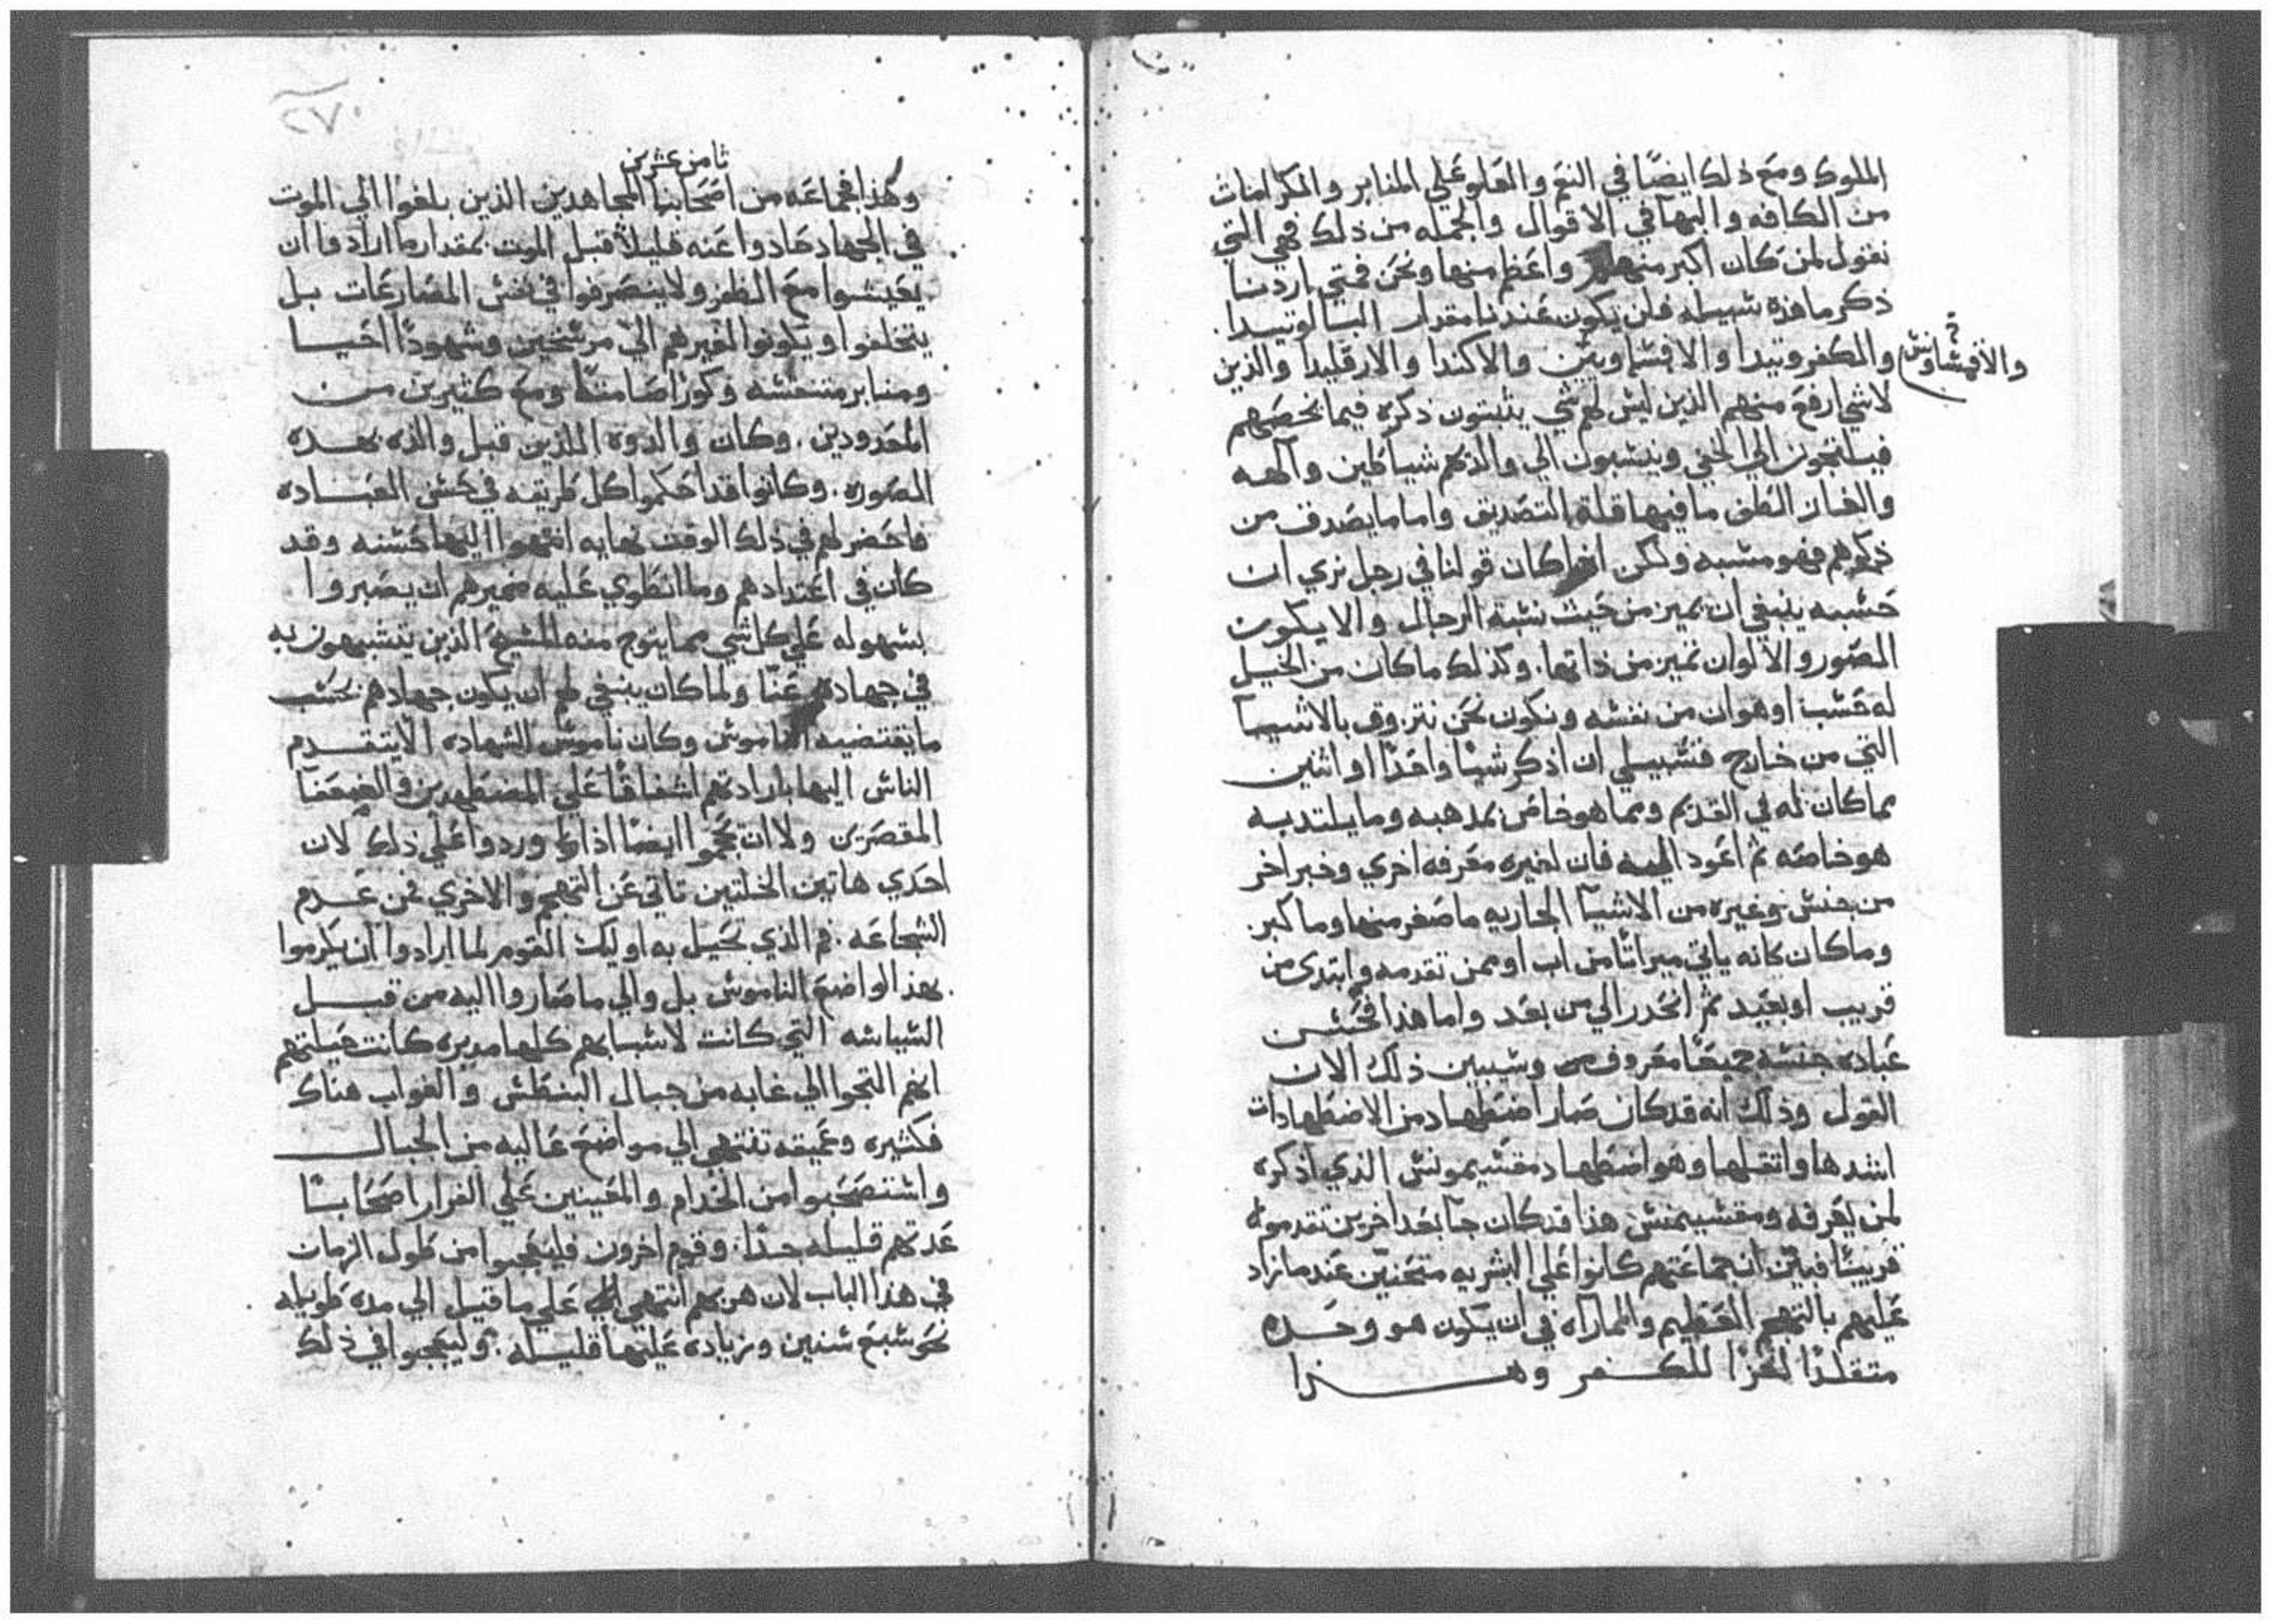 الملوك ومع ذلك ايضًا في النعم والعلو علي المنابر والمكرامات
من الكافه والبهآ في الاقوال والجمله من ذلك فهي التي
نقول لمن كان اكبر منها واعظم منها ونحن فمتي اردنا
ذكر ما هذه سبيله فلن يكون عندنا مقدار البسالوتيدا
والمكفروتيدا والافشاويين والاكندا والارقليدا والذين
والاقمشاونس
لاشي ارفع منهم الذين ليس لهم شي يثبتون ذكره فيما يخصهم
فيلتجون الي الخفي وينسبون الي والدهم شياطين وآلهه
والغاز الطف ما فيها قلة التصديق واما ما يصدق من
ذكرهم فهو مشبه ولكن اذا كان قولنا في رجل نري ان
حسبه ينبغي ان يميز من حيث نسبه الرجال والا يكون
الصور والالوان تميز من ذاتها. وكذلك ما كان من الخيل
له حسب او هوان من نفسه ونكون نحن نتزوق بالاشيآ
التي من خارج فسبيلي ان اذكر شيًا واحدًا او اثنين
مما كان له في القديم ومما هو خاص بمذهبه وما يلتد به
هو خاصه ثم اعود اليه فان لغيره معرفه اخري وخبر اخر
من جنس وغيره من الاشيآ الجاريه ما صغر منها وما كبر.
وما كان كانه ياتي ميراثًا من اب او ممن تقدمه وابتدى من
قريب او بعيد ثم انحدر الي من بعد واما هذا فحسن
عباده جنسه جميعًا معروف وسيبين ذلك الان
القول وذلك انه قد كان صار اضطهاد من الاضطهادات
اشدها واثقلها وهو اضطهاد مقسيمونس الذي اذكره
لمن يعرفه ومقسيمنس هذا قد كان جآ بعد اخرين تقدموه
قريبًا فبين ان جماعتهم كانوا علي البشريه متحنين عند ما زاد
عليهم بالتهجم العظيم والماراه في ان يكون هو وحده
متقلدًا لخزًا للكفر وهذا
ثامن عشرين
وهذا فجماعه من اصحابنا المجاهدين الذين بلغوا الي الموت
في الجهاد حادوا عنه قليلاً قبل الموت بمقدار ما ارادوا ان
يعيشوا مع الظفر ولا ينصرفوا في نفس المصارعات بل
يتخلفوا ويكونوا لغيرهم الي مرشخين وشهودًا احيا
ومنابر متنفسه وكورًا صامتًا ومع كثيرين من
المحدودين. وكان والدوه اللذين قبل والده بهذه
الصوره. وكانوا قد احكموا كل طريقه في حسن العباده
فاحضر لهم في ذلك الوقت نهايه انتهوا اليها حسنه وقد
كان في اعتدادهم وما انطوي عليه ضميرهم ان يصبروا
بسهوله علي كل شي مما يتوج منه المسيح الذين يتشبهون به
في جهادهم عنّا ولما كان ينبغي لهم ان يكون جهادهم بحسب
ما يقتضيه الناموس وكان ناموس الشهاده الا يتقدم
الناس اليها بارادتهم اشفاقًا علي المضطهدين والضعفآ
المقصرين ولا ان يحجموا ايضًا اذا وردوا علي ذلك لان
احدي هاتين الخلتين تاتي عن التهجم والاخري عن عدم
الشجاعه. فما الذي تحيل به اوليك القوم لما ارادوا ان يكرموا
بهذا لواضع الناموس بل والي ما صاروا اليه من قبل
السياسه التي كانت لاسبابهم كلها مدبره كانت حيلتهم
انهم التجوا الي غابه من جبال البنطس والغواب هناك
فكثيره وعميقه تنتهي الي مواضع عاليه من الجبال
واستصحبوا من الخدام والمعينين علي الفرار اصحابًا
عدتهم قليله جدًا. وقوم اخرون فليعجبوا من طول الزمان
في هذا الباب لان هربهم انتهي علي ما قيل الي مده طويله
نحو سبع سنين وزياده عليها قليله. وليعجبوا في ذلك